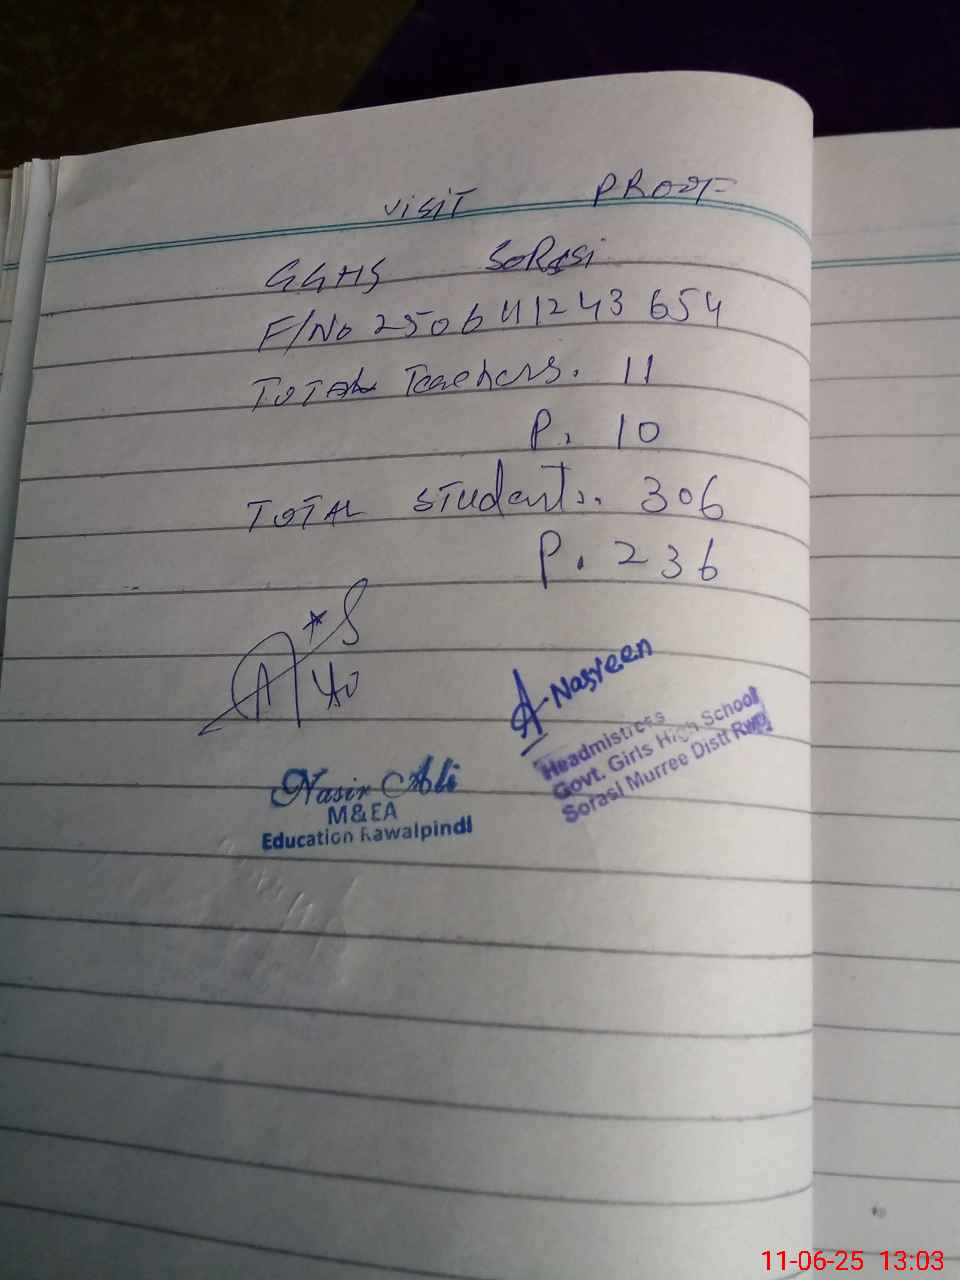 VISIT PROOF
GGHS SORASI
F/No 2506411243654
TOTAL Teachers. 11
P. 10
TOTAL Students. 306
P. 236
A. Nasreen
Headmistress
Govt. Girls High School
Sorasi Murree Distt Rwp
Nasir Ali
M&EA
Education Rawalpindi
11-06-25 13:03